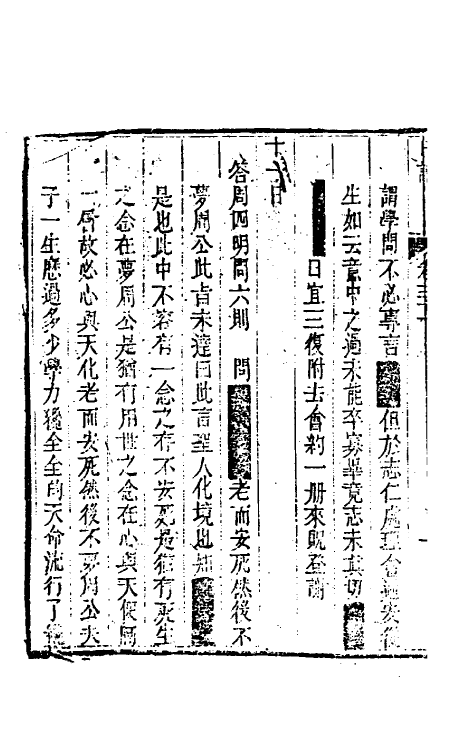 謂學問不必專言但於志仁處理會過失從
生如云意中之過未能卒寡畢竟志未真切
日宜三復附去會約一册來貺登謝
十一日
答周四明問六則　問老而安死然後不
夢周公此旨未達曰此言聖人化境也知
是也此中不容有一念之存不安死是猶有死生
之念在夢周公是猶有用世之念在心與天便隔
一唇故必心與天化老而安死然後不夢周公夫
子一生歷過多少學力纔全全的天命流行了